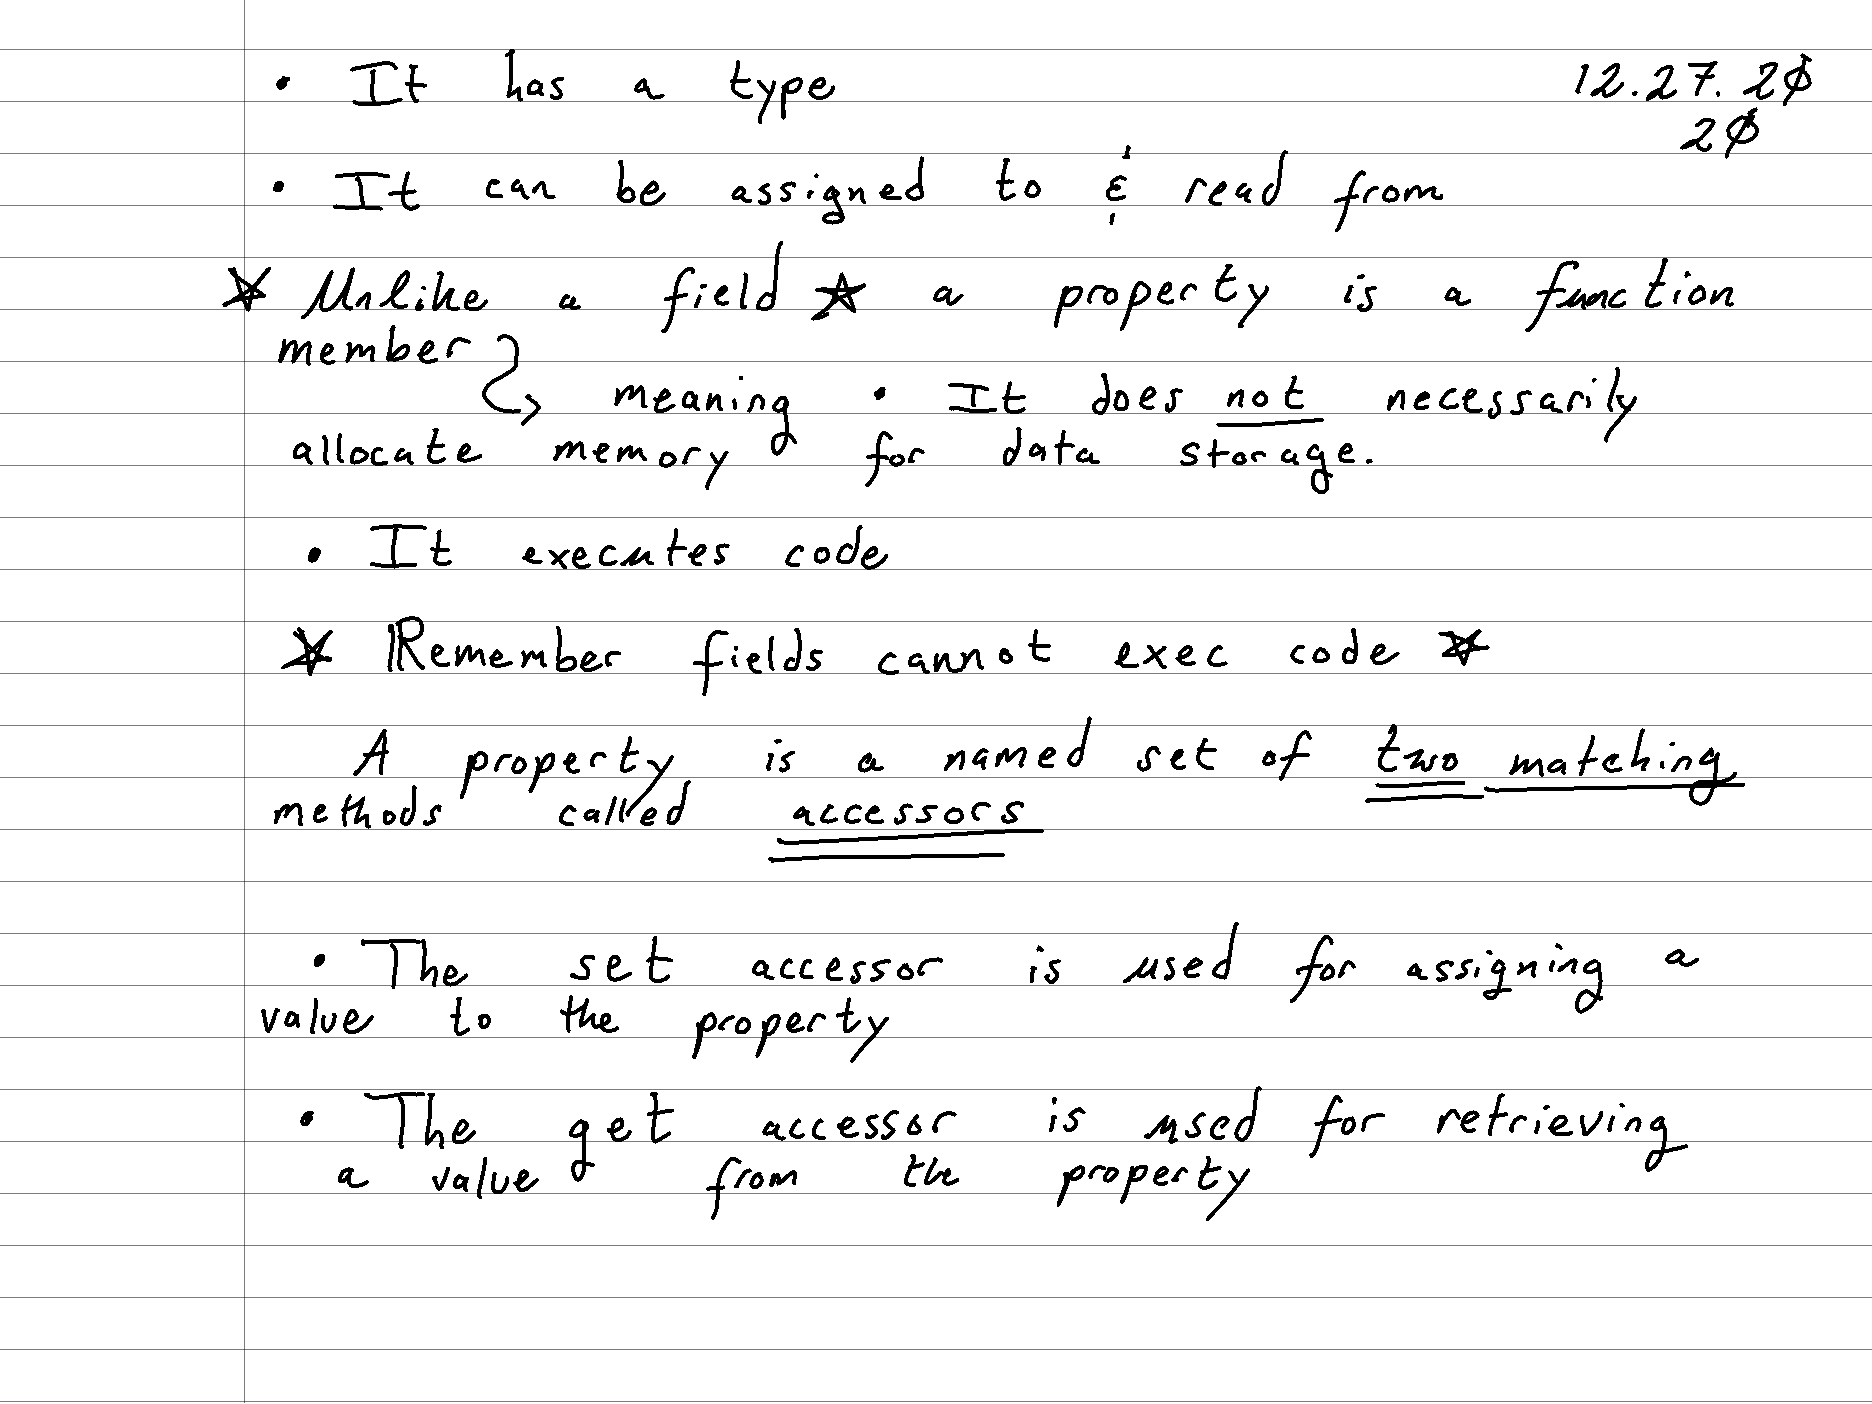 • It has a type 12.27.20
20
• It can be assigned to & read from
☆ Unlike a field ☆ a property is a function
member
meaning • It does not necessarily
allocate memory for data storage.
• It executes code
☆ Remember fields cannot exec code ☆
A property is a named set of two matching
methods called accessors
• The set accessor is used for assigning a
value to the property
• The get accessor is used for retrieving
a value from the property